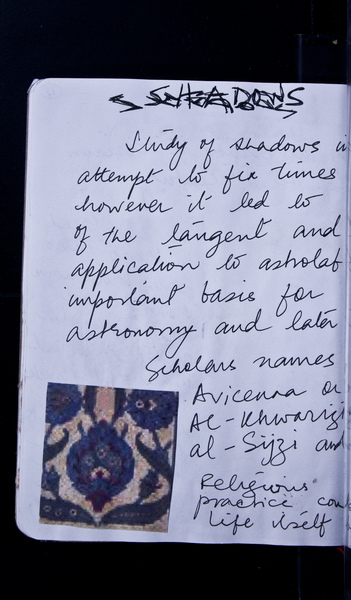 SHADOWS
Study of shadows i
attempt to fix times
however it led to
of the tangent and
application to astrolab
important basis for
astronomy and later
Scholars names
Avicenna or
Al-Khwariz
al-Sijzi and
Religious
practice cou
life itself